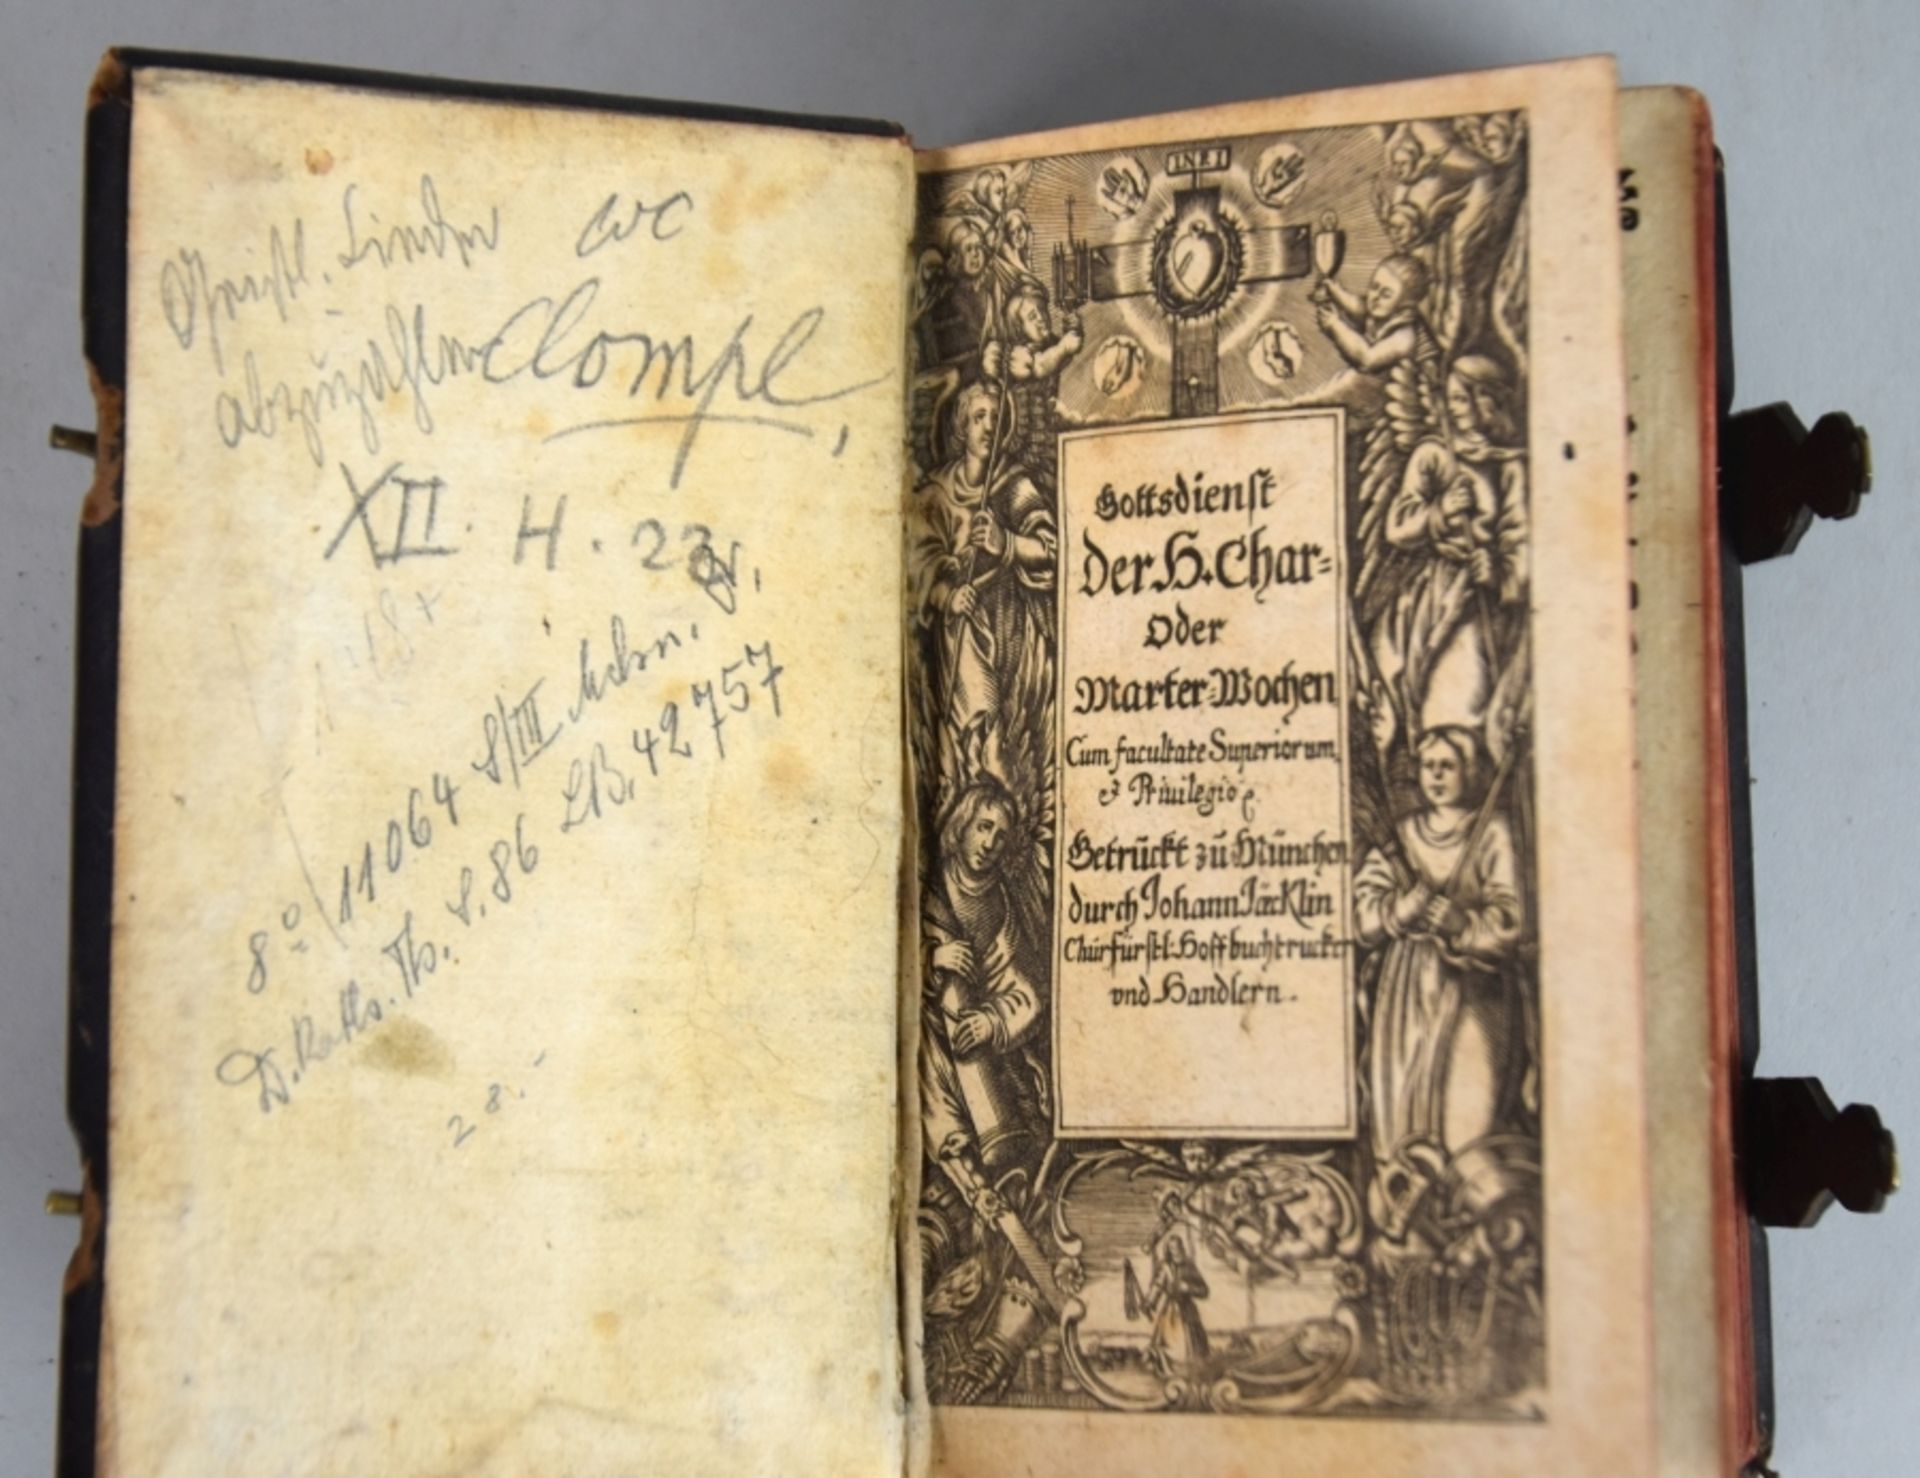 Geistl. Lieder wc
abzuzuhlen Compl,
XII. H. 22
18+
8º 11064 S/III
S. 86 LB. 42757
28.-
INRI
Gottsdienst
Der H. Char=
Oder
Marter=Wochen
Cum facultate Superiorum,
& Priuilegio
Getrückt zů München
durch Johann Jäcklin
Chůrfürstl: Hoffbuchtrucker
vnd Handlern.